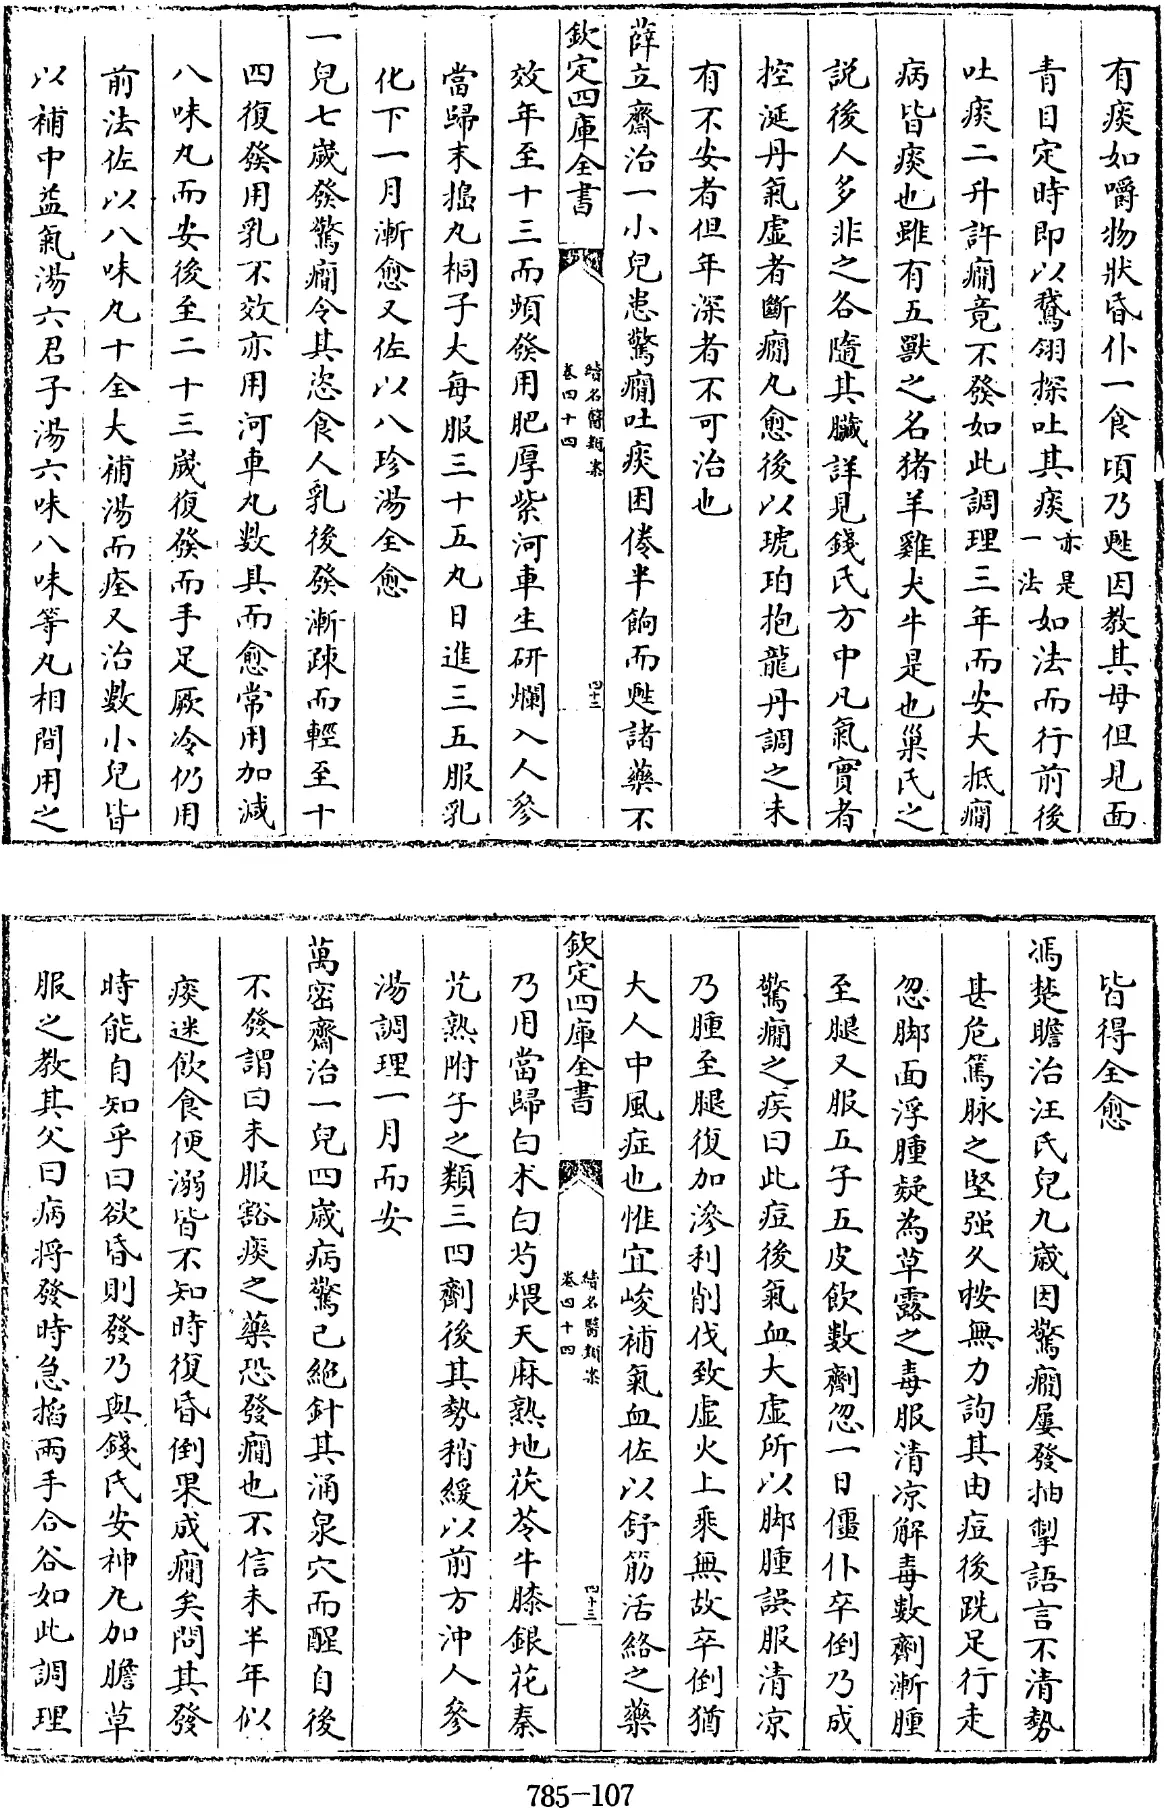 有痰如嚼物狀昏仆一食頃乃甦因教其母但見面
青目定時即以鵞翎探吐其痰亦是一法如法而行前後
吐痰二升許癎竟不發如此調理三年而安大抵癎
病皆痰也雖有五獸之名猪羊雞犬牛是也巢氏之
説後人多非之各隨其臟詳見錢氏方中凡氣實者
控涎丹氣虚者斷癎丸愈後以琥珀抱龍丹調之未
有不安者但年深者不可治也
薛立齋治一小兒患驚癎吐痰困倦半餉而甦諸藥不
欽定四庫全書
續名醫類案
卷四十四
四十三
效年至十三而頻發用肥厚紫河車生研爛入人參
當歸末搗丸桐子大每服三十五丸日進三五服乳
化下一月漸愈又佐以八珍湯全愈
一兒七嵗發驚癎令其恣食人乳後發漸疎而輕至十
四復發用乳不效亦用河車丸數具而愈常用加減
八味丸而安後至二十三嵗復發而手足厥冷仍用
前法佐以八味丸十全大補湯而痊又治數小兒皆
以補中益氣湯六君子湯六味八味等丸相間用之
皆得全愈
馮楚瞻治汪氏兒九嵗因驚癎屢發抽掣語言不清勢
甚危篤脉之堅强久按無力詢其由痘後跣足行走
忽脚面浮腫疑為草露之毒服清凉解毒數劑漸腫
至腿又服五子五皮飲數劑忽一日僵仆卒倒乃成
驚癎之疾曰此痘後氣血大虚所以脚腫誤服清凉
乃腫至腿復加滲利削伐致虚火上乘無故卒倒猶
大人中風症也惟宜峻補氣血佐以舒筋活絡之藥
欽定四庫全書
續名醫類案
卷四十四
四十三
乃用當歸白术白芍煨天麻熟地茯苓牛膝銀花秦
艽熟附子之類三四劑後其勢稍緩以前方沖人參
湯調理一月而安
萬密齋治一兒四嵗病驚已絶針其涌泉穴而醒自後
不發謂曰未服豁痰之藥恐發癎也不信未半年似
痰迷飲食便溺皆不知時復昏倒果成癎矣問其發
時能自知乎曰欲昏則發乃與錢氏安神丸加膽草
服之教其父曰病將發時急掐兩手合谷如此調理
785-107